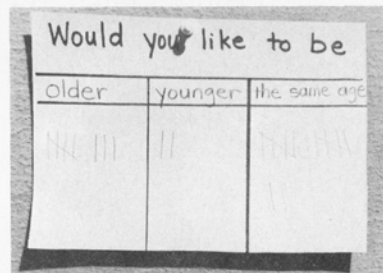 Would you like to be
older younger the same age